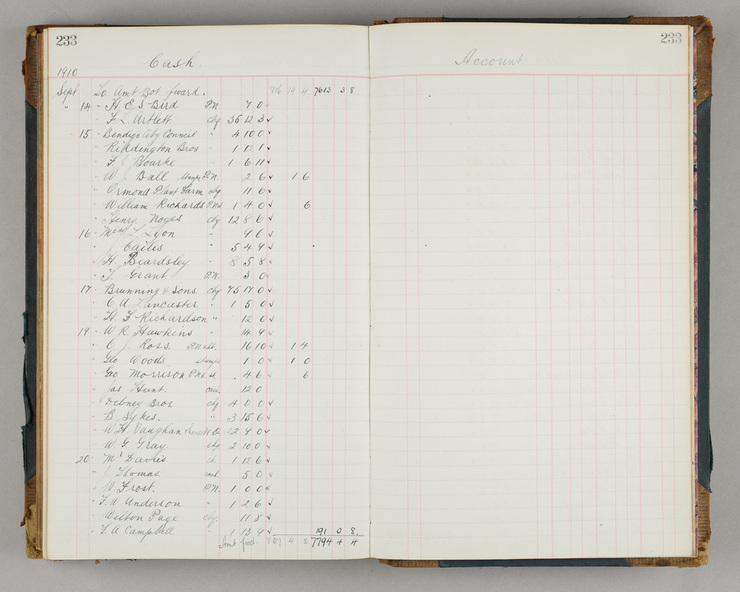 233
Cash.
1910
Sept. To Amt Bot forard. 7613 3 8
" 14 - H. E. S Bird P.N. 7 0
- F L Artlett chq 35 12 3
15 - Bendigo City Council " 4 10 0
- Riddington Bros - 1 12 1
- F J Bourke - 1 6 11
- W Ball stamps P.N 2 6 1 6
- Ormond Plant Farm chq 11 6
- William Richards P.N 1 4 0 6
- Henry Noyes chq 12 8 6
16 - Miss L Lyon - 9 6
- J Cailes - 5 4 4
- H. Beardsley - 8 5 8
- J Grant P.N. 3 0
17 - Brunning & Sons chq 75 17 0
- C A Lancaster " 1 5 0
- H F Richardson " 12 0
19 - W R Hawkins - 14 4
- C J Ross P.N 16 10 1 4
- Geo Woods stamps 1 0 1 0
- Geo Morrison P.N 4 6 6
- Jas Hunt 12 0
- Debney Bros chq 4 0 0
- B Sykes. " 3 15 6
- W H Vaughan 22 9 0
- W. G Gray chq 2 10 0
20 - Mr Davies 1 12 6
- J Thomas 5 0
- W Frost. P.N. 1 0 0
- F. A Anderson - 1 2 6
- Wilson Page chq. 11 8
- F. A Campbell - 1 13 9 191 0 8.
Amt ford 4 2 7794 4 4
233
Account